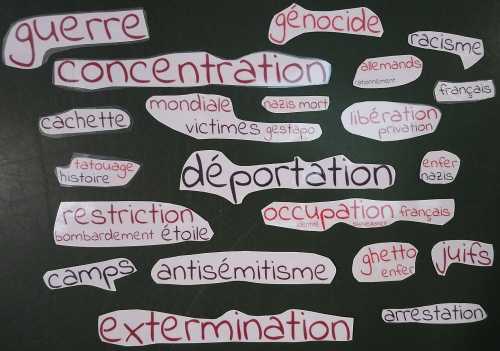 guerre
génocide
racisme
concentration
allemands
rationnement
français
mondiale
nazis mort
victimes gestapo
cachette
libération
privation
tatouage
histoire
déportation
enfer
nazis
restriction
bombardement étoile
occupation français
identité
camps
antisémitisme
ghetto
enfer
juifs
extermination
arrestation